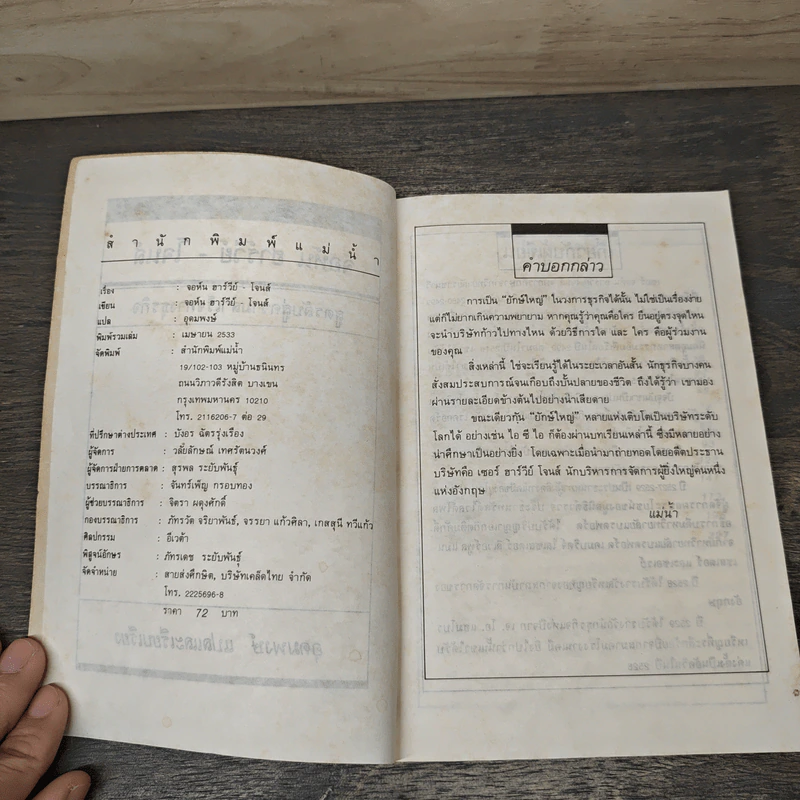 สำนักพิมพ์แม่น้ำ
เรื่อง : จอห์น ฮาร์วีย์ - โจนส์
เขียน : จอห์น ฮาร์วีย์ - โจนส์
แปล : อุดมพงษ์
พิมพ์รวมเล่ม : เมษายน 2533
จัดพิมพ์ : สำนักพิมพ์แม่น้ำ
19/102-103 หมู่บ้านธนินทร
ถนนวิภาวดีรังสิต บางเขน
กรุงเทพมหานคร 10210
โทร. 2116206-7 ต่อ 29
ที่ปรึกษาต่างประเทศ : บังอร ฉัตรรุ่งเรือง
ผู้จัดการ : วลัยลักษณ์ เทศรัตนวงศ์
ผู้จัดการฝ่ายการตลาด : สุรพล ระยับพันธุ์
บรรณาธิการ : จันทร์เพ็ญ กรอบทอง
ผู้ช่วยบรรณาธิการ : จิตรา ผดุงศักดิ์
กองบรรณาธิการ : ภัทรวัด จริยาพันธ์, จรรยา แก้วศิลา, เกสสุนี ทวีแก้ว
ศิลปกรรม : อีเวต้า
พิสูจน์อักษร : ภัทรเดช ระยับพันธุ์
จัดจำหน่าย : สายส่งศึกษิต, บริษัทเคล็ดไทย จำกัด
โทร. 2225696-8
ราคา 72 บาท
คำบอกกล่าว
การเป็น "ยักษ์ใหญ่" ในวงการธุรกิจได้นั้น ไม่ใช่เป็นเรื่องง่าย
แต่ก็ไม่ยากเกินความพยายาม หากคุณรู้ว่าคุณคือใคร ยืนอยู่ตรงจุดไหน
จะนำบริษัทก้าวไปทางไหน ด้วยวิธีการใด และ ใคร คือผู้ร่วมงาน
ของคุณ
สิ่งเหล่านี้ ใช่จะเรียนรู้ได้ในระยะเวลาอันสั้น นักธุรกิจบางคน
สั่งสมประสบการณ์จนเกือบถึงบั้นปลายของชีวิต ถึงได้รู้ว่า เขามอง
ผ่านรายละเอียดข้างต้นไปอย่างน่าเสียดาย
ขณะเดียวกัน "ยักษ์ใหญ่" หลายแห่งเติบโตเป็นบริษัทระดับ
โลกได้ อย่างเช่น ไอ ซี ไอ ก็ต้องผ่านบทเรียนเหล่านี้ ซึ่งมีหลายอย่าง
น่าศึกษาเป็นอย่างยิ่ง โดยเฉพาะเมื่อนำมาถ่ายทอดโดยอดีตประธาน
บริษัทคือ เซอร์ ฮาร์วีย์ โจนส์ นักบริหารการจัดการผู้ยิ่งใหญ่คนหนึ่ง
แห่งอังกฤษ
แม่น้ำ